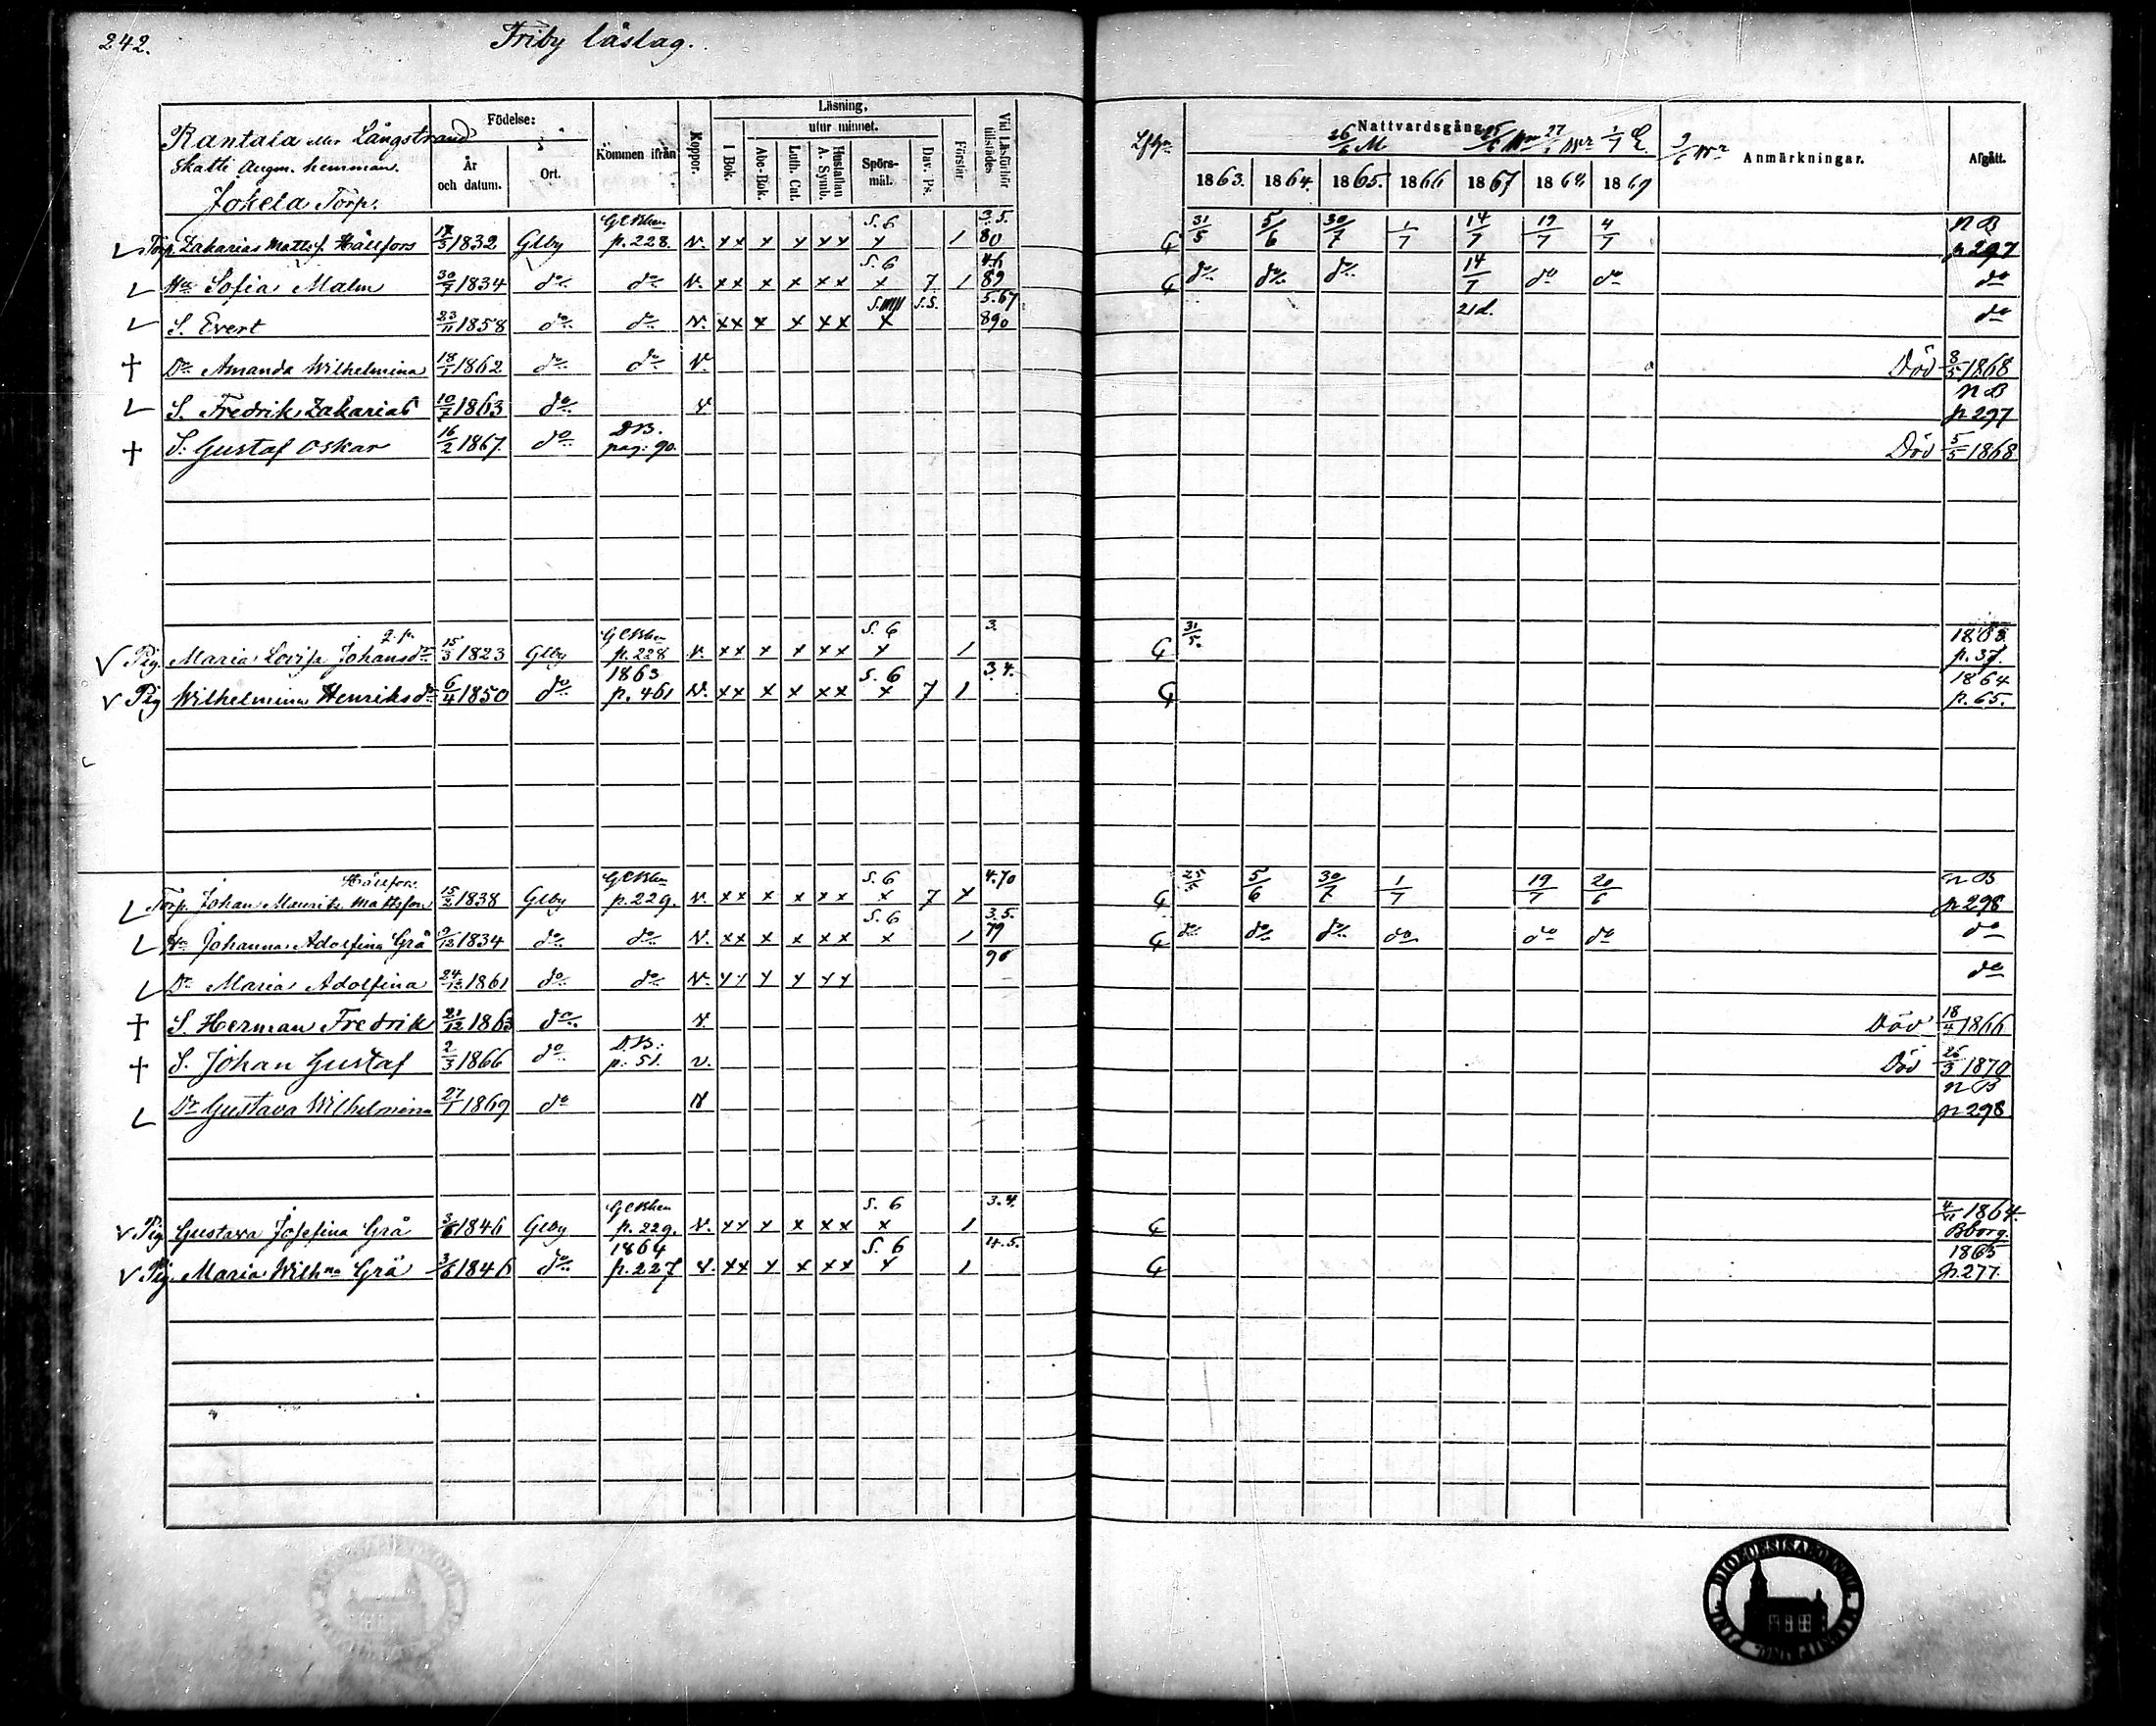 242.
Friby läslag.
Rantala eller Långstrand
Skatte Augm. hemman.
Jokela Torp.
Födelse:
År och datum.
Ort.
Kommen ifrån
Koppor.
Läsning,
I Bok.
utur minnet.
Abc-Bok.
Luth. Cat.
Hustaflan A. Symb.
Spörsmål.
Dav. Ps.
Förstår
Vid Läsförhör tillstädes
Nattvardsgång
26/6 M
1863. 1864. 1865. 1866 1867 1868 1869
Anmärkningar.
Afgått.
Torp. Zakarias Mattsf. Hällfors 1832 Glby GCBken p. 228. v. xx x x xx S. 6 x 1 3.5. 80 31/5 5/6 30/7 1/7 14/7 19/7 4/7 NB p 297
Hu Sofia Malm 30/7 1834 do do v. xx x x xx S. 6 x 7 1 4.6. 89 do do do 14/7 do do do
S. Evert 23/11 1858 do do v. xx x x xx x S.S. 5.67 890 21d. do
Dr Amanda Wilhelmina 18/1 1862 do do v. Död 8/5 1868
S. Fredrik Zakarias 10/7 1863 do v NB p 297
S. Gustaf Oskar 16/2 1867. do DB. pag: 90. Död 5/5 1868
Pig. Maria Lovisa Johansdr 15/3 1823 Glby GCBken p. 228 v. xx x x xx S. 6 x 1 3. 31/5. 1863. p. 37.
Pig Wilhelmina Henriksdr 6/4 1850 do 1863 p. 461 v. xx x x xx S. 6 x 7 1 3.4. 1864 p. 65.
Torp. Johan Mauritz Mattsson Hällfors 15/2 1838 Glby GCBken p. 229. v. xx x x xx S. 6 x 7 x 4.70 25/5 5/6 30/7 1/7 19/7 20/6 NB p 298
Hu Johanna Adolfina Grå 9/12 1834 do do v. xx x x xx S. 6 x 1 3.5. 79 do do do do do do do
Dr Maria Adolfina 24/12 1861 do do v. xx x x xx 90 do
S. Herman Fredrik 21/12 1863 do v. Död 18/4 1866
S. Johan Gustaf 2/3 1866 do D.B: p: 51. v. Död 26/3 1870
Dr Gustava Wilhelmina 27/1 1869 do v NB p 298
Pig Gustava Josefina Grå 3/6 1846 Glby GCBken p. 229. v. xx x x xx S. 6 x 1 3.4. 1864. Bborg.
Pig. Maria Wilhna Grå 3/6 1846 do 1864 p. 227 v. xx x x xx S. 6 x 1 4.5. 1865 p. 277.